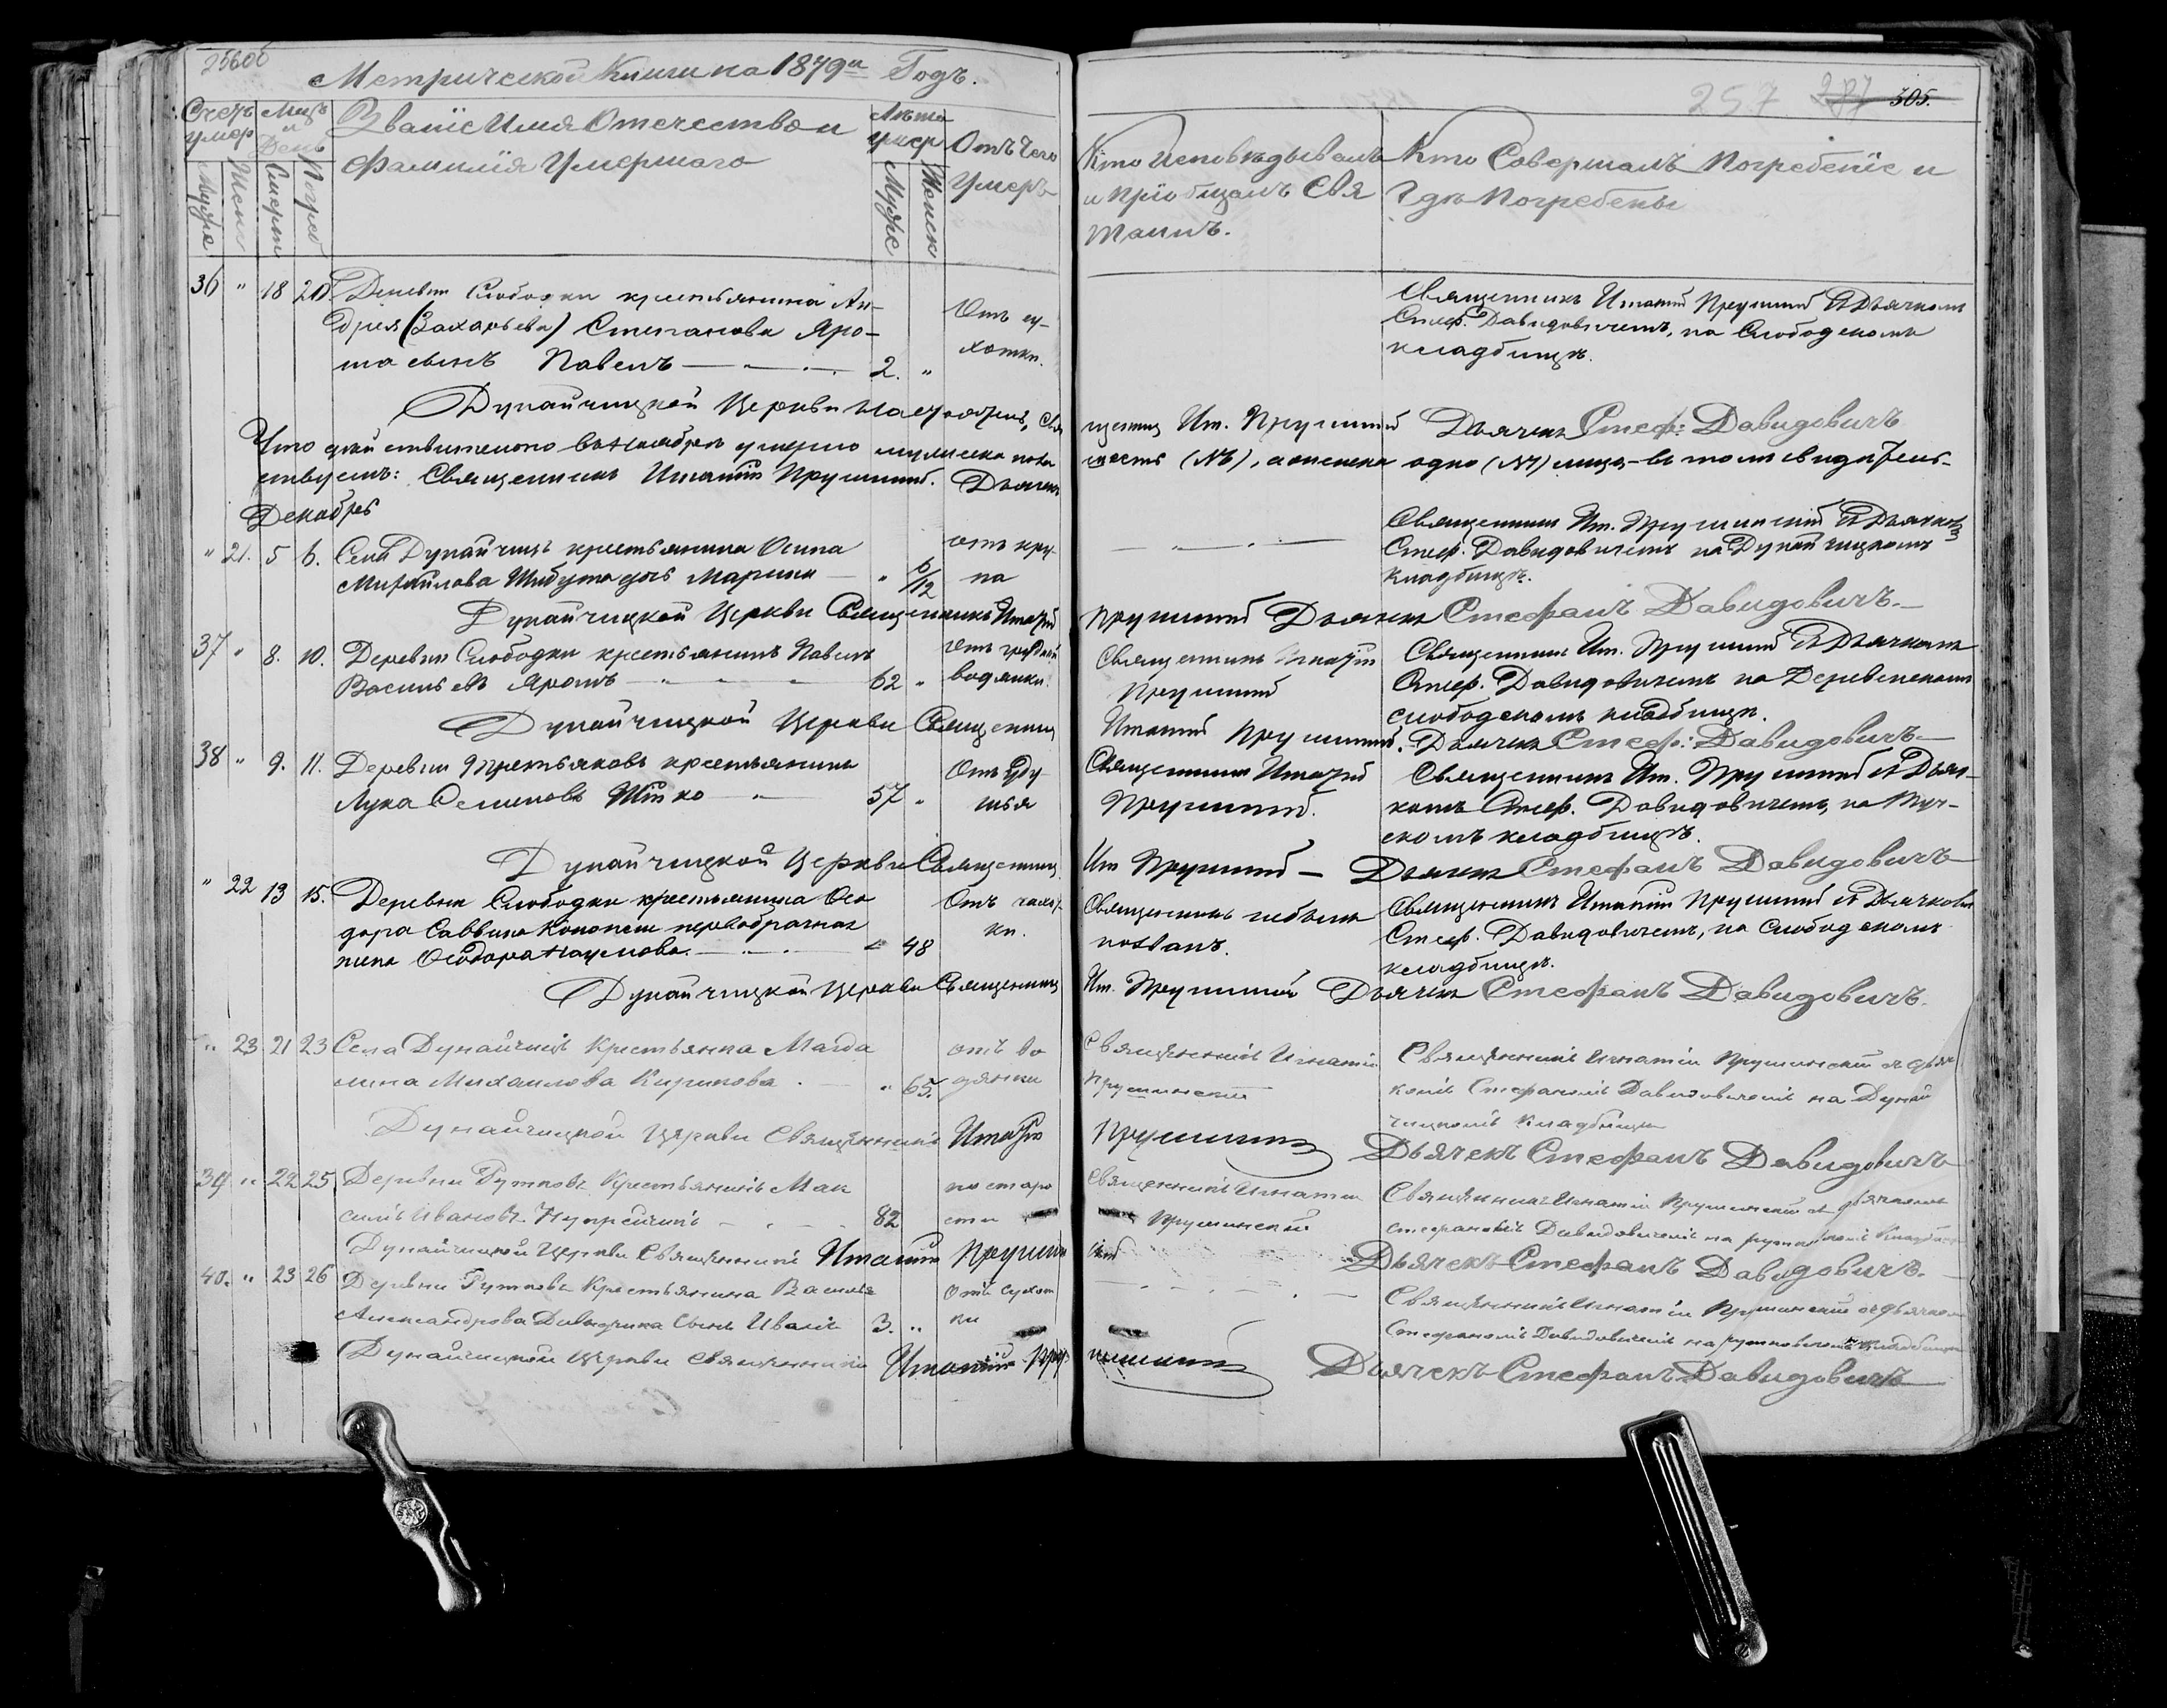 256об
Метрической Книги на 1879й Годъ.
257 287 305.
Счетъ умер
Мцъ и День
Званіе Имя Отечество и
Фамилія Умершаго
Лѣта умер
Отъ чего
Умеръ
Мужс Женс Смерт Погреб
Мужс Женск
Кто Исповѣдывалъ
и Пріобщалъ Свя
Таинъ.
Кто Совершалъ Погребеніе и
Гдѣ Погребены
36 " 18 20 Деревни Слободки крестьянина Ан-
дрея (Захарьева) Степанова Яро-
ша сынъ Павелъ 2. "
Отъ су-
хотки.
Священникъ Игнатій Прушинскій съ Дьячкомъ
Стеф. Давидовичемъ, на Слободскомъ
кладбищѣ.
Дунайчицкой Церкви Свя
щенник Иг. Прушинскій Дьячекъ Стеф: Давидовичъ
Что дѣйствительно въ Ноябрѣ умерло мужеска пола
шесть (№), а женска одно (№) лице въ томъ свидѣтель-
ствуемъ: Священникъ Игнатій Прушинскій. Дьячекъ
Декабрь
" 21. 5 6. Села Дунайчицъ крестьянина Осипа
Михайлова Шибута дочь Марина " 6/12
отъ кру-
па
Священникъ Иг. Прушинскій съ Дьячкомъ
Стеф. Давидовичемъ на Дунайчицкомъ
кладбищѣ.
Дунайчицкой Церкви Священникъ Игнатій
Прушинскій Дьячекъ Стефанъ Давидовичъ.
37 " 8. 10. Деревни Слободки крестьянинъ Павелъ
Васильевъ Ярошъ 62 "
Отъ грудной
водянки.
Священникъ Игнатій
Прушинскій
Священникъ Иг. Прушинскій съ Дьячкомъ
Стеф. Давидовичемъ на Деревенскомъ
слободскомъ кладбищѣ.
Дунайчицкой Церкви Священник
Игнатій Прушинскій. Дьячекъ Стеф: Давидовичъ
38 " 9. 11. Деревни Третьяковъ крестьянинъ
Лука Семеновъ Шішко " 57 "
Отъ Уду
шья
Священникъ Игнатій
Прушинскій.
Священникъ Иг. Прушинскій съ Дьяч-
комъ Стеф. Давидовичемъ, на
скомъ кладбищѣ.
Дунайчицкой Церкви Священник
Иг Прушинскій Дьячекъ Стефанъ Давидовичъ
" 22 13 15. Деревни Слободки крестьянина Ѳео
дора Саввина первобрачная
жена Ѳеодора Наумова. " 48
Отъ чахот
ки.
Священникъ небылъ
позванъ.
Священникъ Игнатій Прушинскій съ Дьячкомъ
Стеф. Давидовичемъ, на Слободскомъ
кладбищѣ.
Дунайчицкой Церкви Священник
Иг. Прушинскій Дьячекъ Стефанъ Давидовичъ.
" 23 21 23 Села Дунайчицъ Крестьянка Магда
лина Михаилова Кирикова " 65.
отъ во
дянки
Священникъ Игнатій
Прушинскій
Священникъ Игнатій Прушинскій съ дьяч
комъ Стефаномъ Давидовичемъ на Дунай
чицкомъ Кладбищѣ
Дунайчицкой Церкви Священникъ Игнатій
Прушинскій Дьячекъ Стефанъ Давидовичъ
39 " 22 25 Деревни Рутковъ Крестьянинъ Мак
симъ Ивановъ Купрейчикъ 82
по старо
сти
Священникъ Игнатій
Прушинскій
Священникъ Игнатій Прушинскій съ дьячкомъ
Стефаномъ Давидовичемъ на Кладбищѣ
Дунайчицкой Церкви Священникъ Игнатій Прушин
скій Дьячекъ Стефанъ Давидовичъ.
40. " 23 26 Деревни Рутковъ Крестьянина Василія
Александрова Сынъ Иванъ 3. "
Отъ Сухот
ки
Священникъ Игнатій Прушинскій съ Дьячкомъ
Стефаномъ Давидовичемъ на рутковскомъ Кладбищѣ
Дунайчицкой Церкви Священникъ Игнатій Пру
шинскій Дьячекъ Стефанъ Давидовичъ